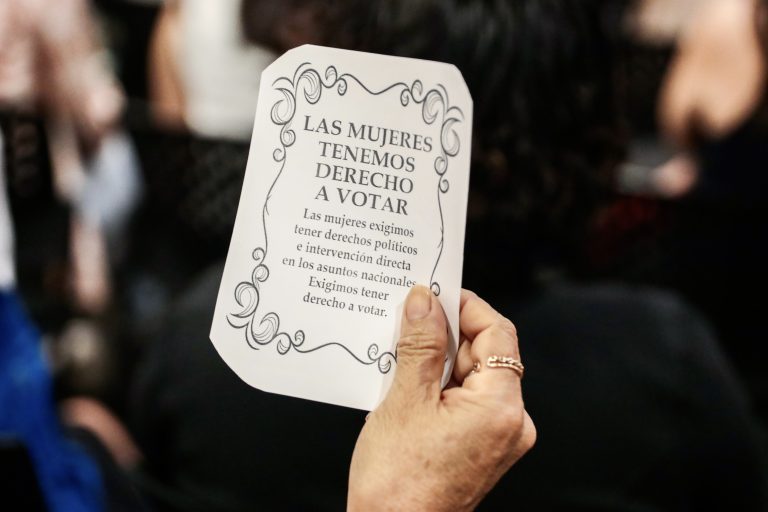 LAS MUJERES
TENEMOS
DERECHO
A VOTAR
Las mujeres exigimos
tener derechos políticos
e intervención directa
en los asuntos nacionales.
Exigimos tener
derecho a votar.